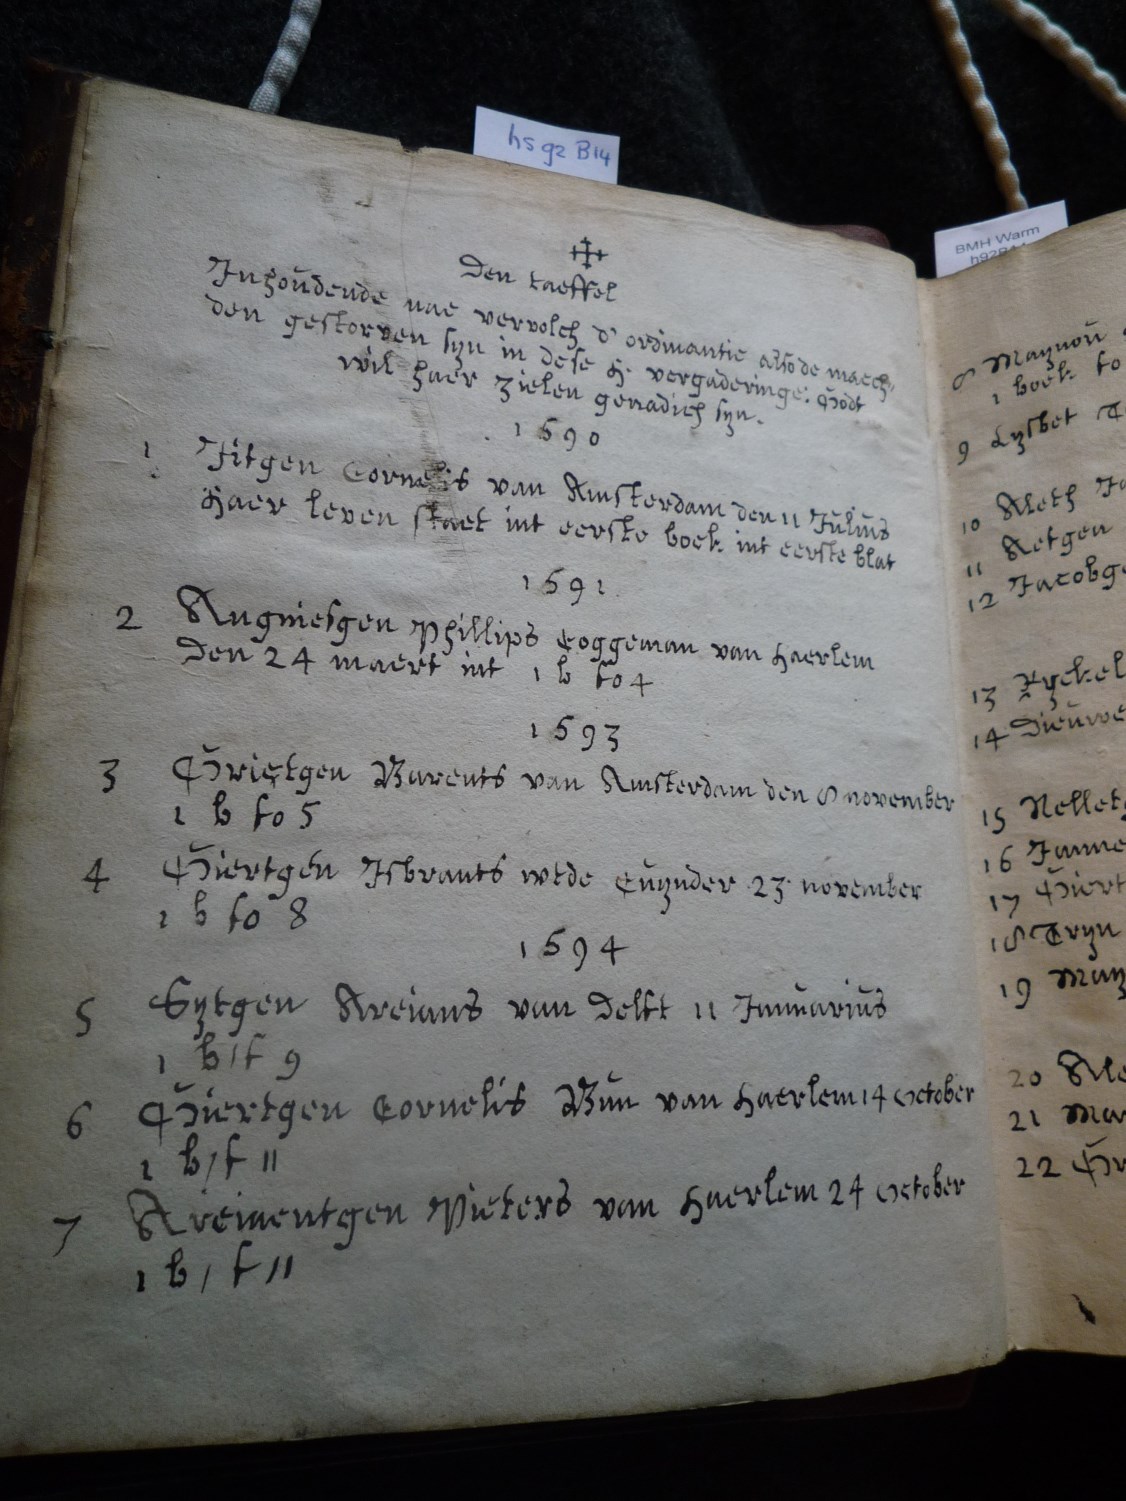 hs 92 B14
BMH Warm
h92B14
Den taeffel
Inhoudende nae vervolch d' ordinantie also de maech,
den gestorven syn in dese H. vergaderinge: Godt
wil haer zielen genadich syn.
1590
1 Jitgen Cornelis van Amsterdam den 11 Julius
haer leven staet int eerste boek int eerste blat
1591
2 Angniesgen Phillips Coggeman van haerlem
Den 24 maert int 1 b fo 4
1593
3 Grietgen Barents van Amsterdam den 8 november
1 b fo 5
4 Giertgen Isbrants wtde Cuynder 23 november
1 b fo 8
1594
5 Sytgen Areians van Delft 11 Januarius
1 b / f 9
6 Giertgen Cornelis Bun van haerlem 14 october
1 b / f 11
7 Areiaentgen Pieters van haerlem 24 october
1 b / f 11
8 Maynou
1 boek fo
9 Lysbet
10 Aleth
11 Aetgen
12 Jacobge
13
14 Dieuwe
15 Nellet
16 Janne
17 Giert
18 Tryn
19 May
20 Ale
21 Mar
22 Gr